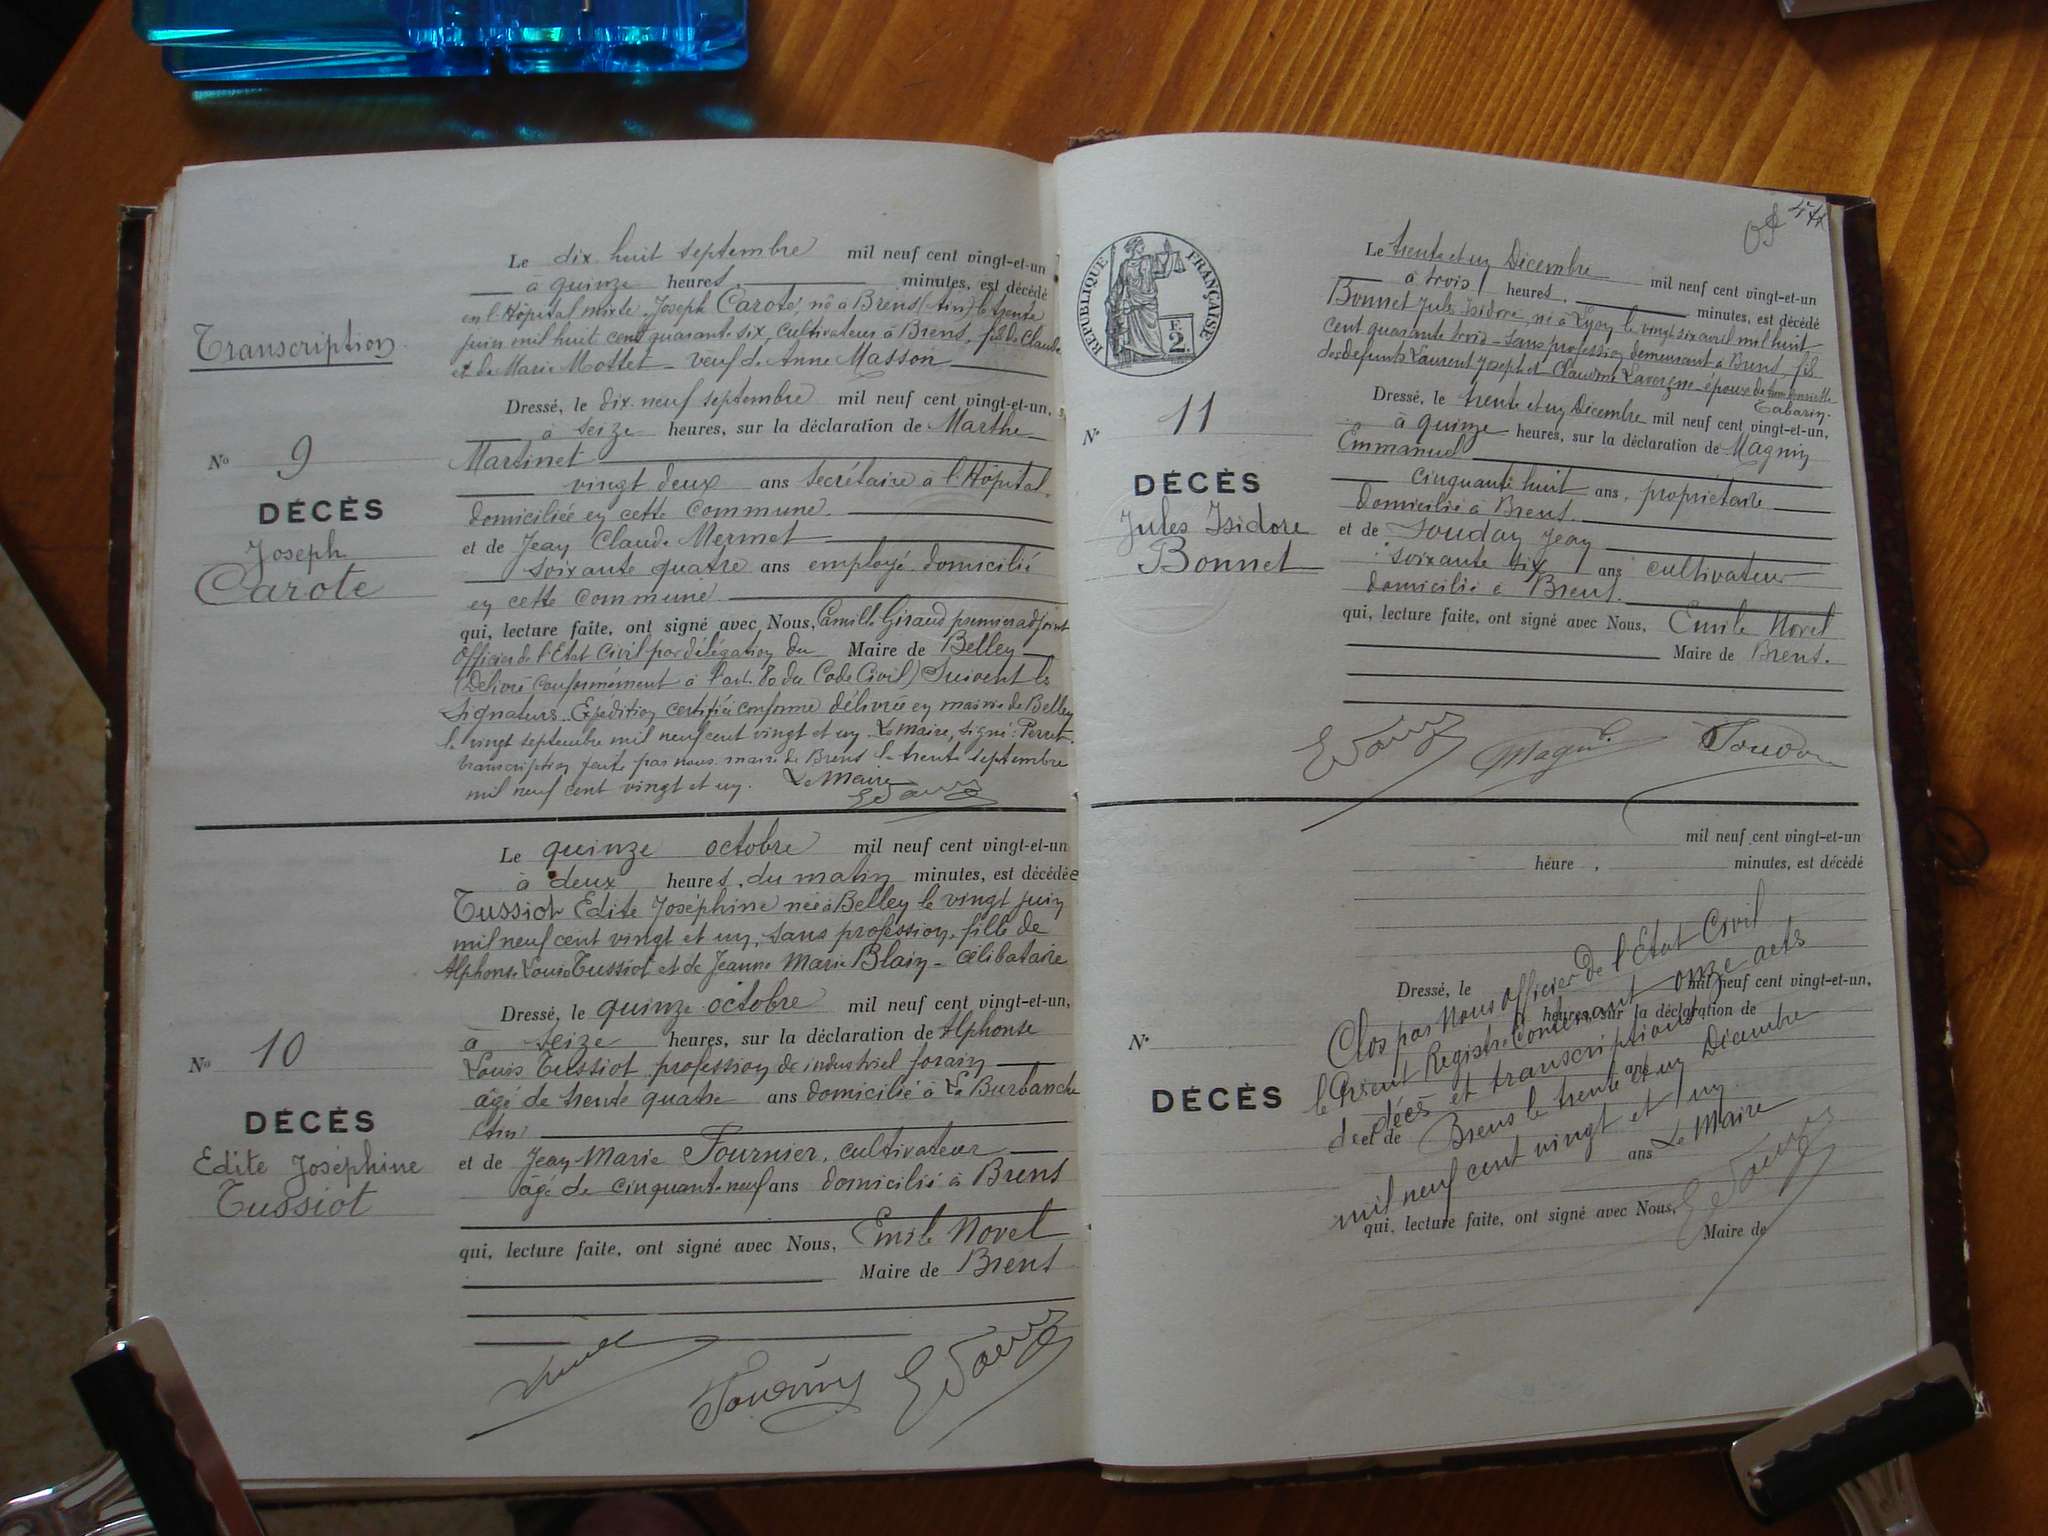 Transcription
N° 9
DÉCÈS
Joseph
Carote
Le dix huit septembre mil neuf cent vingt-et-un
à quinze heures, minutes, est décédé
en l'Hôpital mixte Joseph Carote, né à Brens (Ain) le trente
juin mil huit cent quarante six, cultivateur à Brens, fils de Claude
et de Marie Mottet - veuf de Anne Masson
Dressé, le dix neuf septembre mil neuf cent vingt-et-un,
à seize heures, sur la déclaration de Marthe
Martinet
vingt deux ans secrétaire à l'Hôpital,
domiciliée en cette commune.
et de Jean Claude Mermet
soixante quatre ans employé domicilié
en cette commune
qui, lecture faite, ont signé avec Nous, Camille Giraud premier adjoint
Officier de l'Etat Civil par délégation du Maire de Belley
(Délivré conformément à l'art. 80 du Code Civil) Suivent les
signatures. Expédition certifiée conforme délivrée en mairie de Belley
le vingt septembre mil neuf cent vingt et un. Le Maire, signé: Perret.
transcription faite par nous maire de Brens le trente septembre
mil neuf cent vingt et un. Le Maire
N° 10
DÉCÈS
Edite Joséphine
Tussiot
Le quinze octobre mil neuf cent vingt-et-un
à deux heures, du matin minutes, est décédée
Tussiot Edite Joséphine née à Belley le vingt juin
mil neuf cent vingt et un, sans profession, fille de
Alphonse Louis Tussiot et de Jeanne Marie Blain - célibataire
Dressé, le quinze octobre mil neuf cent vingt-et-un,
à seize heures, sur la déclaration de Alphonse
Louis Tussiot profession de industriel forain
âgé de trente quatre ans domicilié à La Burbanche
(Ain)
et de Jean-Marie Fournier, cultivateur
âgé de cinquante-neuf ans domicilié à Brens
qui, lecture faite, ont signé avec Nous, Emile Novel
Maire de Brens
RÉPUBLIQUE FRANÇAISE
2
N° 11
DÉCÈS
Jules Isidore
Bonnet
Le trente et un Décembre mil neuf cent vingt-et-un
à trois heures, minutes, est décédé
Bonnet Jules Isidore, né à Lyon le vingt six avril mil huit
cent quarante trois - sans profession demeurant à Brens, fils
des defunts Laurent Joseph et Claudine Lavergne - époux de
Tabarin.
Dressé, le trente et un Décembre mil neuf cent vingt-et-un,
à quinze heures, sur la déclaration de Magnin
Emmanuel
cinquante huit ans, propriétaire
domicilié à Brens.
et de Foudon Jean
soixante six ans cultivateur
domicilié à Brens.
qui, lecture faite, ont signé avec Nous, Emile Novel
Maire de Brens.
Magnin
N°
DÉCÈS
mil neuf cent vingt-et-un
heure, minutes, est décédé
Dressé, le mil neuf cent vingt-et-un,
heures, sur la déclaration de
ans
et de
ans
qui, lecture faite, ont signé avec Nous,
Maire de
Clos par Nous Officier de l'Etat Civil
le Présent Registre Contenant onze acts
de décès et transcriptions
Brens le trente et un Décembre
mil neuf cent vingt et un
Le Maire